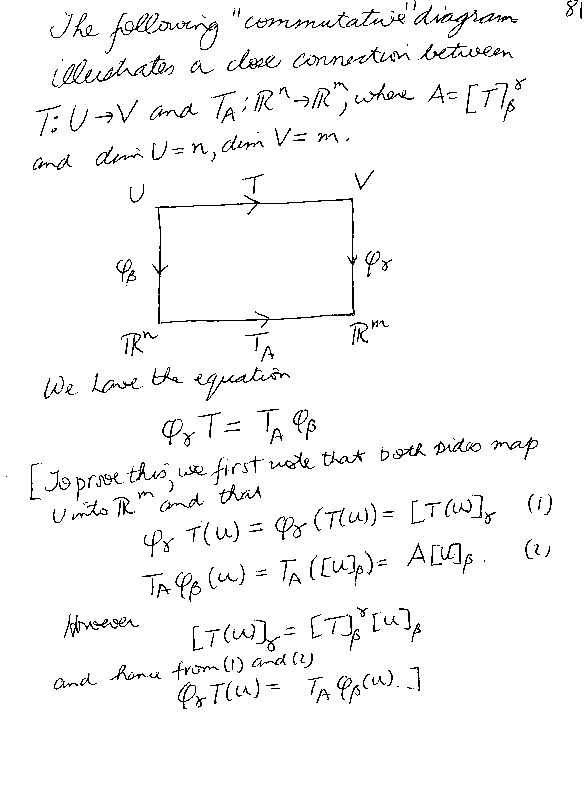 81
The following "commutative" diagram
illustrates a close connection between
T: U → V and T_A: ℝⁿ → ℝᵐ, where A = [T]_β^γ
and dim U = n, dim V = m.
U T V
φ_β φ_γ
ℝⁿ T_A ℝᵐ
We have the equation
φ_γ T = T_A φ_β
[To prove this, we first note that both sides map
U into ℝᵐ and that
φ_γ T(u) = φ_γ (T(u)) = [T(u)]_γ (1)
T_A φ_β (u) = T_A ([u]_β) = A[u]_β. (2)
However
[T(u)]_γ = [T]_β^γ [u]_β
and hence from (1) and (2)
φ_γ T(u) = T_A φ_β(u). ]